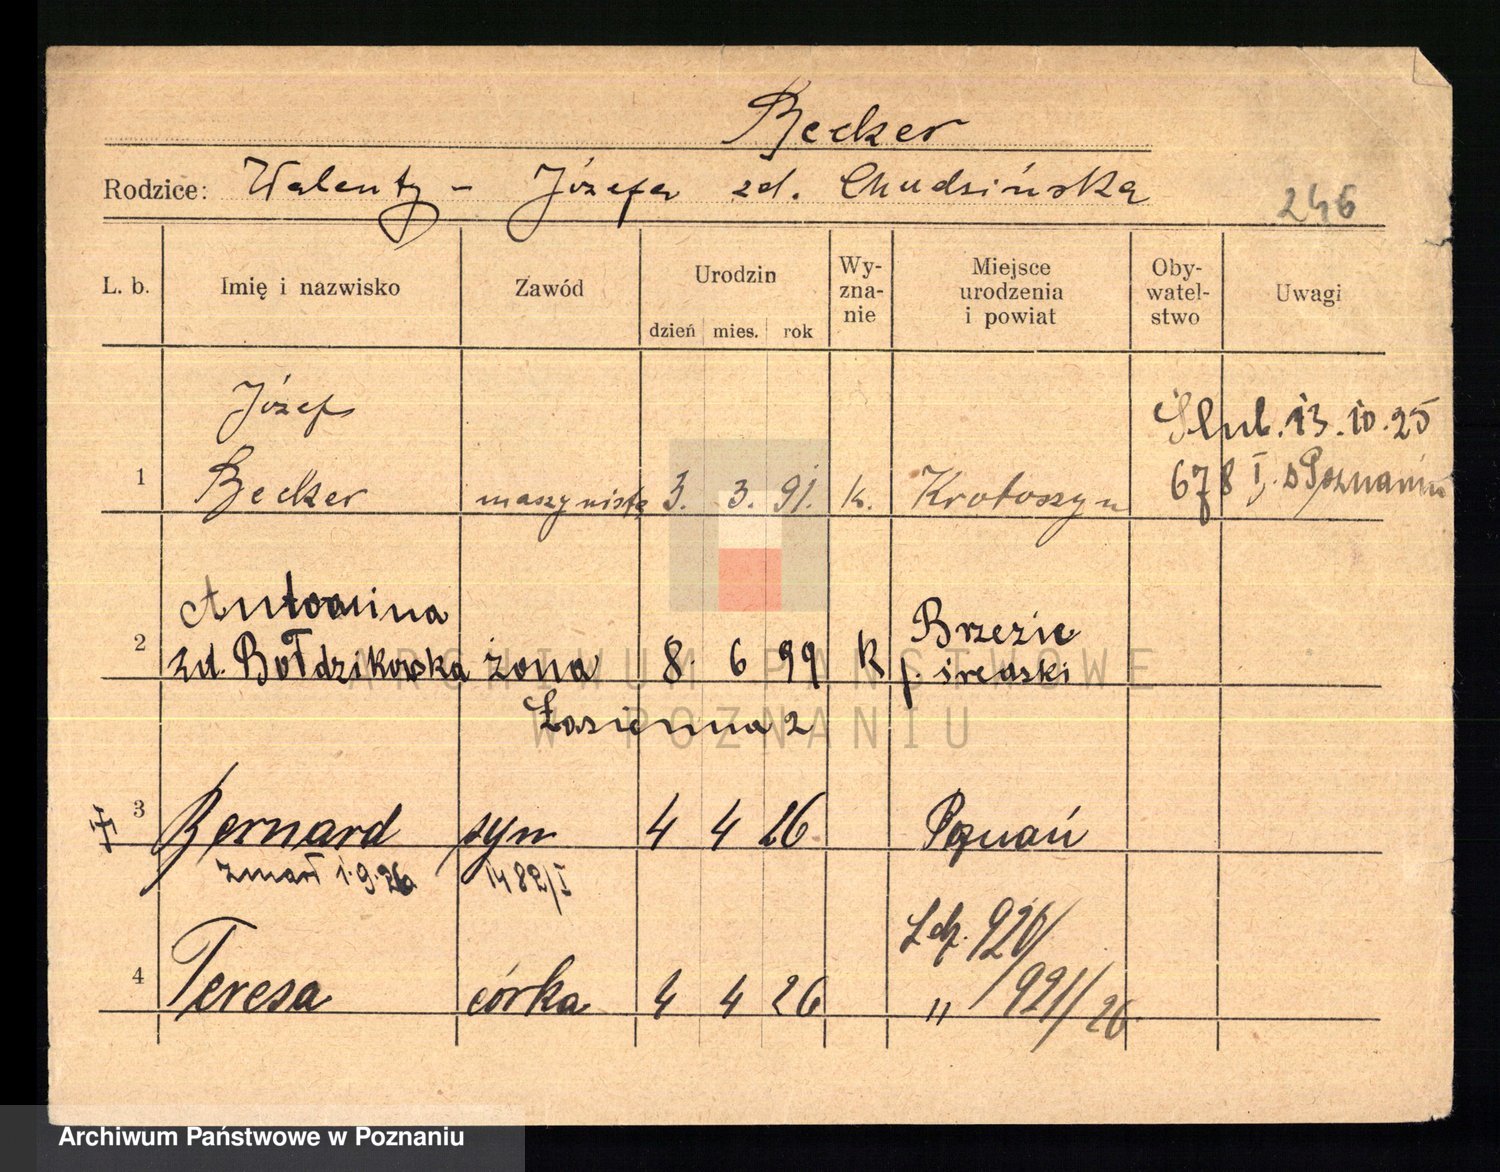 Becker
Rodzice: Walenty - Józefa zd. Chudzińska
246
L. b. Imię i nazwisko Zawód Urodzin Wy-zna-nie Miejsce urodzenia i powiat Oby-watel-stwo Uwagi
dzień mies. rok
Józef
Ślub. 13.10.25
1 Becker maszynista 3. 3. 91. k. Krotoszyn 678 I, s Poznaniu
Antonina Brzezie
2 zd. Bołdzikowska żona 8. 6 99 k p. średzki
Łazienna 2
3 Bernard syn 4 4 26 Poznań
zmarł 1.9.26 1482/I
920/
4 Teresa córka 4 4 26 " 921/26
ARCHIWUM PAŃSTWOWE
W POZNANIU
Archiwum Państwowe w Poznaniu